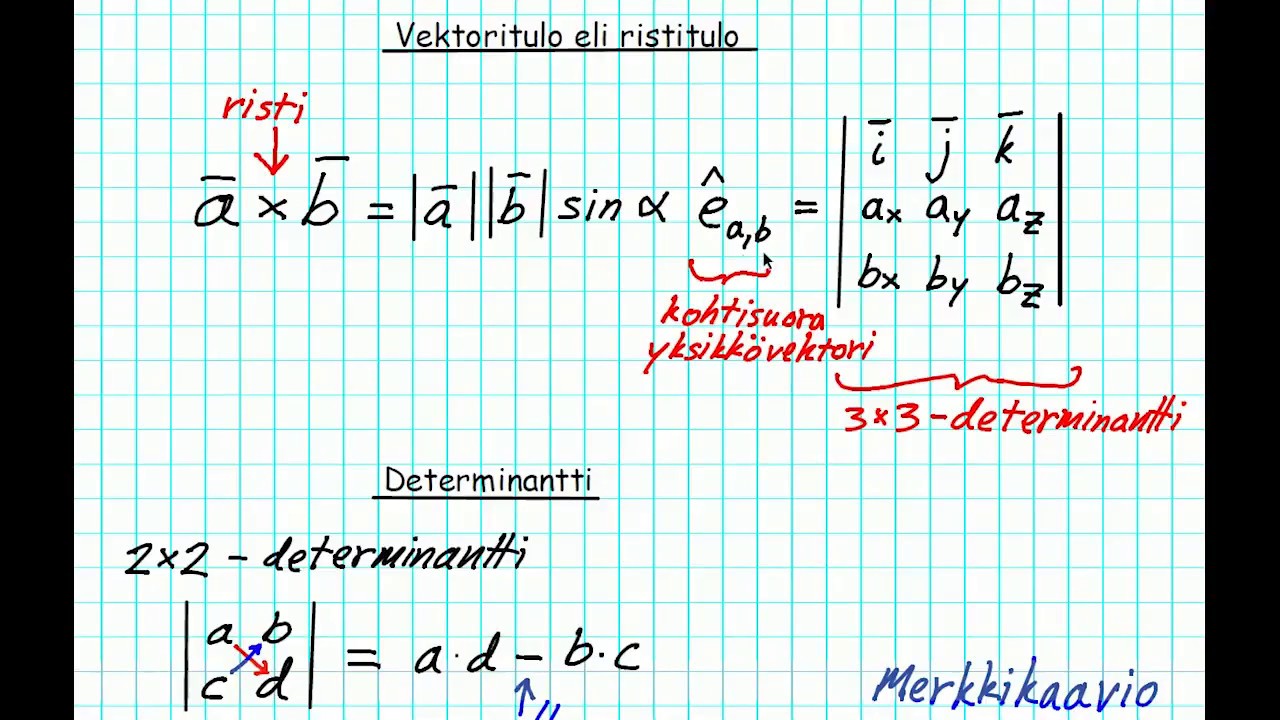 Vektoritulo eli ristitulo
risti
a̅ × b̅ = |a̅||b̅| sin α ê a,b = | i̅ j̅ k̅ |
| ax ay az |
| bx by bz |
kohtisuora
yksikkövektori
3×3-determinantti
Determinantti
2×2 - determinantti
| a b |
| c d | = a·d - b·c
Merkkikaavio